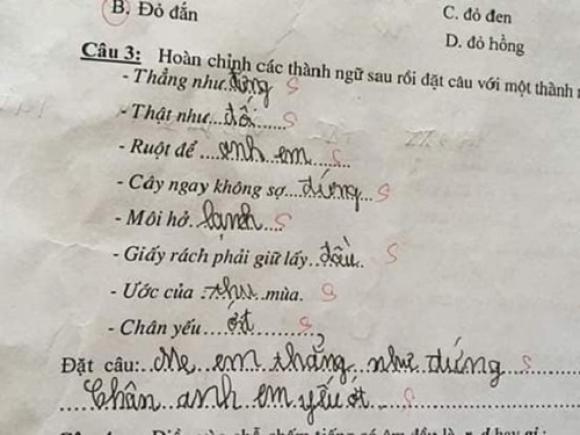 B. Đỏ đắn
C. đỏ đen
D. đỏ hồng
Câu 3: Hoàn chỉnh các thành ngữ sau rồi đặt câu với một thành
- Thẳng như..đứng S
- Thật như...đối...... S
- Ruột để ...anh em...... S
- Cây ngay không sợ....đứng... S
- Môi hở..lạnh.... S
- Giấy rách phải giữ lấy..đầu.. S
- Ước của .thu..mùa. S
- Chân yếu....ớt........... S
Đặt câu:..Mẹ em thẳng như đứng S
Chân anh em yếu ớt S